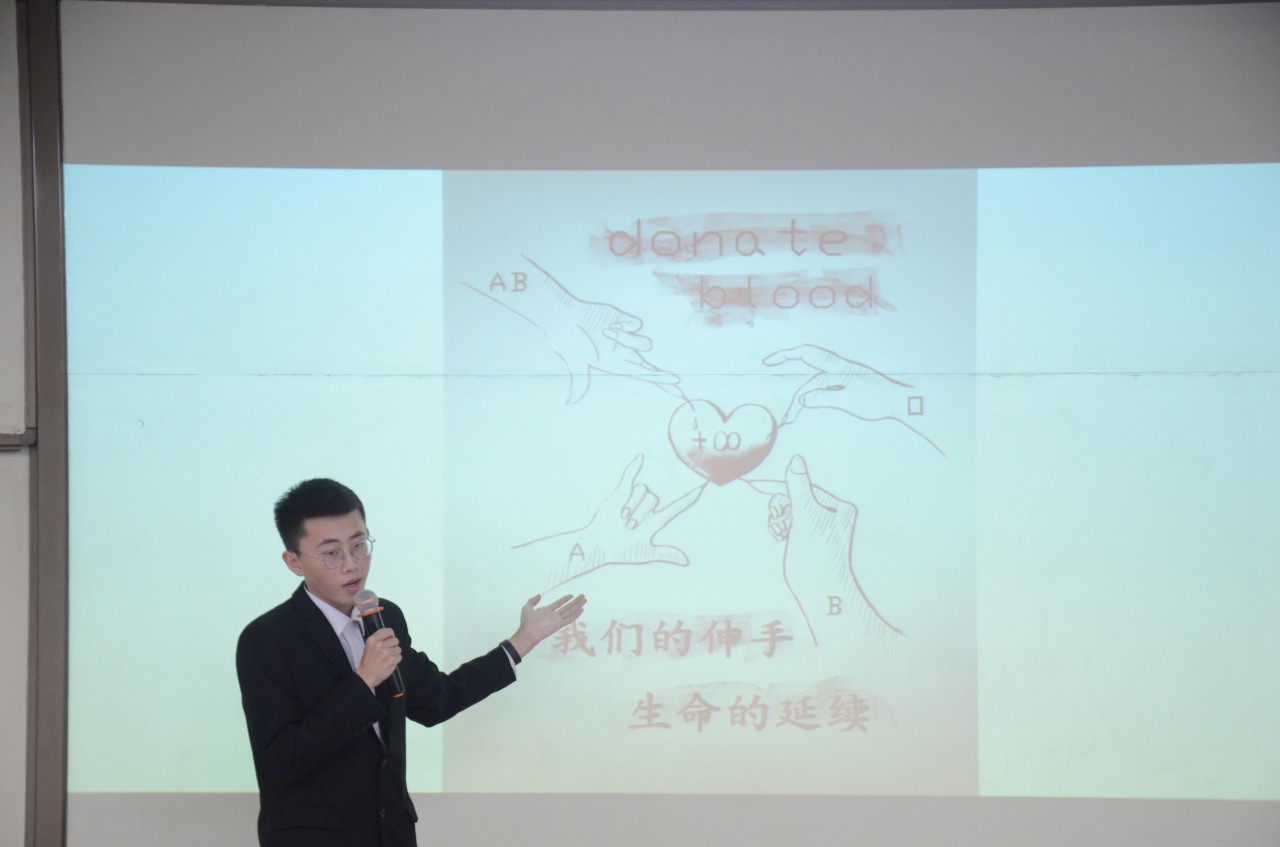 donate
blood
AB
口
+∞
A
B
我们的伸手
生命的延续